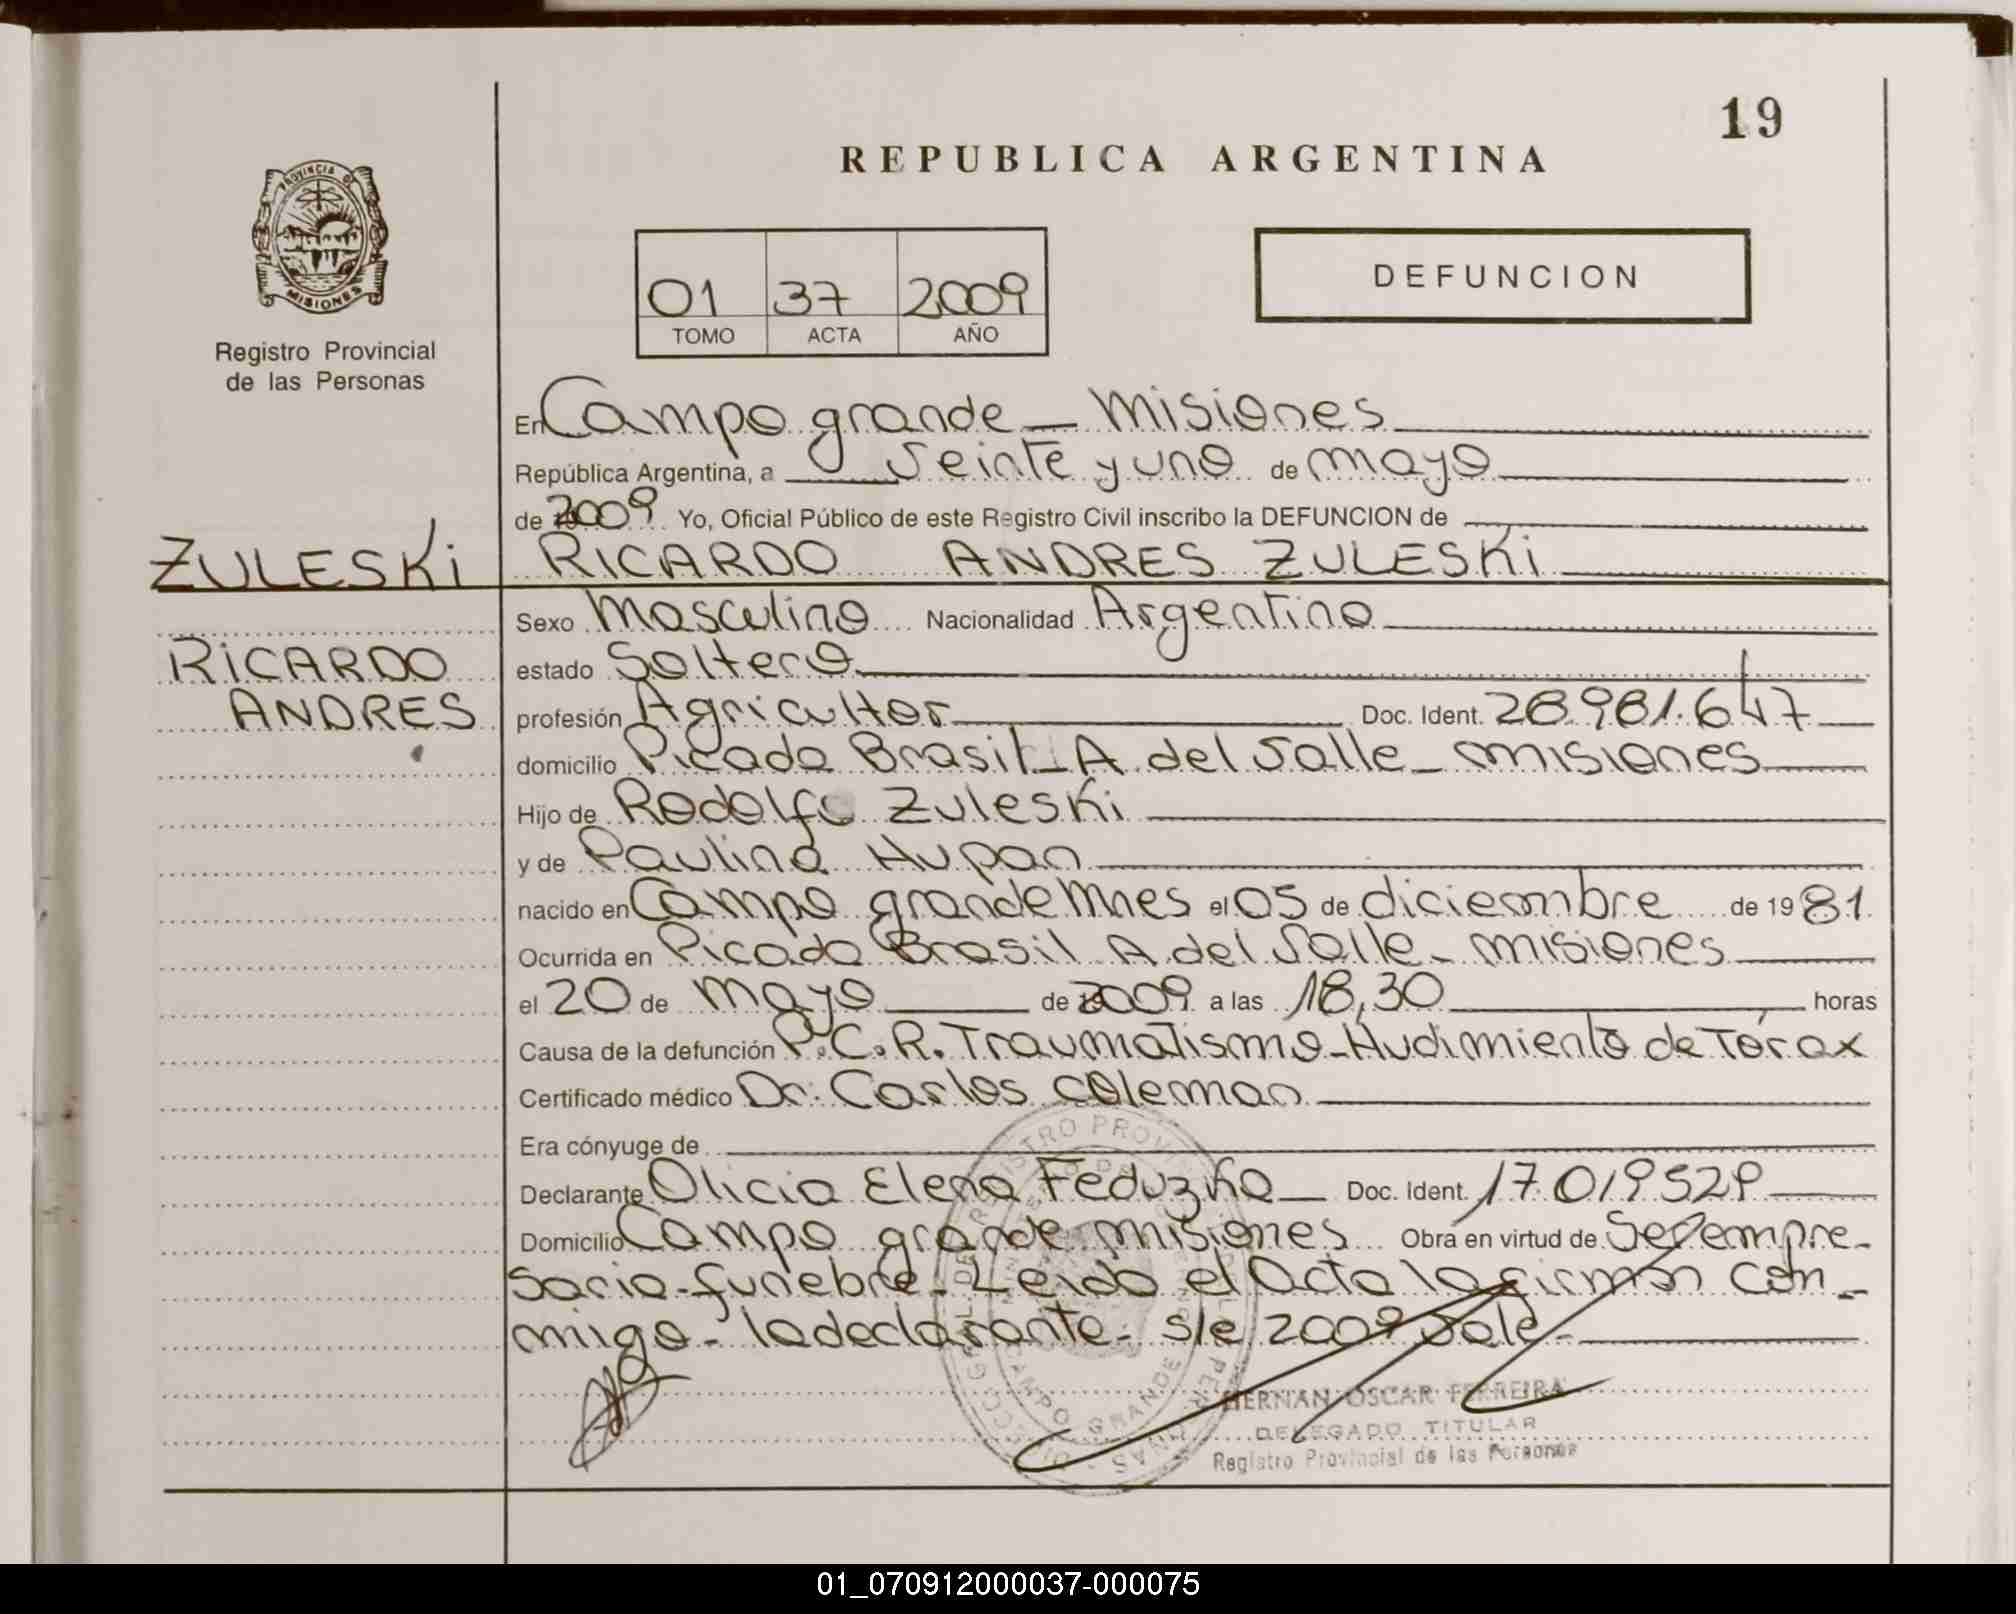 19
REPUBLICA ARGENTINA
PROVINCIA DE
MISIONES
Registro Provincial
de las Personas
01 37 2009
TOMO ACTA AÑO
DEFUNCION
En Campo grande - Misiones
República Argentina, a Veinte y uno de mayo
de 2009 Yo, Oficial Público de este Registro Civil inscribo la DEFUNCION de
ZULESKI RICARDO ANDRES ZULESKI
Sexo Masculino Nacionalidad Argentino
RICARDO estado Soltero
ANDRES profesión Agricultor Doc. Ident. 28.981.647
domicilio Picada Brasil - A. del Valle - misiones
Hijo de Rodolfo Zuleski
y de Paulina Hupan
nacido en Campo grande Mnes el 05 de diciembre de 1981
Ocurrida en Picada Brasil A. del Valle - misiones
el 20 de mayo de 2009 a las 18,30 horas
Causa de la defunción P.C.R. Traumatismo - Hudimiento de Tórax
Certificado médico Dr. Carlos Coleman
Era cónyuge de
Declarante Olicia Elena Feduzka Doc. Ident. 17.019529
Domicilio Campo grande misiones Obra en virtud de Ser empre-
saria funebre - Leida el Acta la firman con-
migo - la declarante - s/e 2009 Vale -
HERNAN OSCAR FERREIRA
DELEGADO TITULAR
Registro Provincial de las Personas
CAMPO GRANDE
01_070912000037-000075